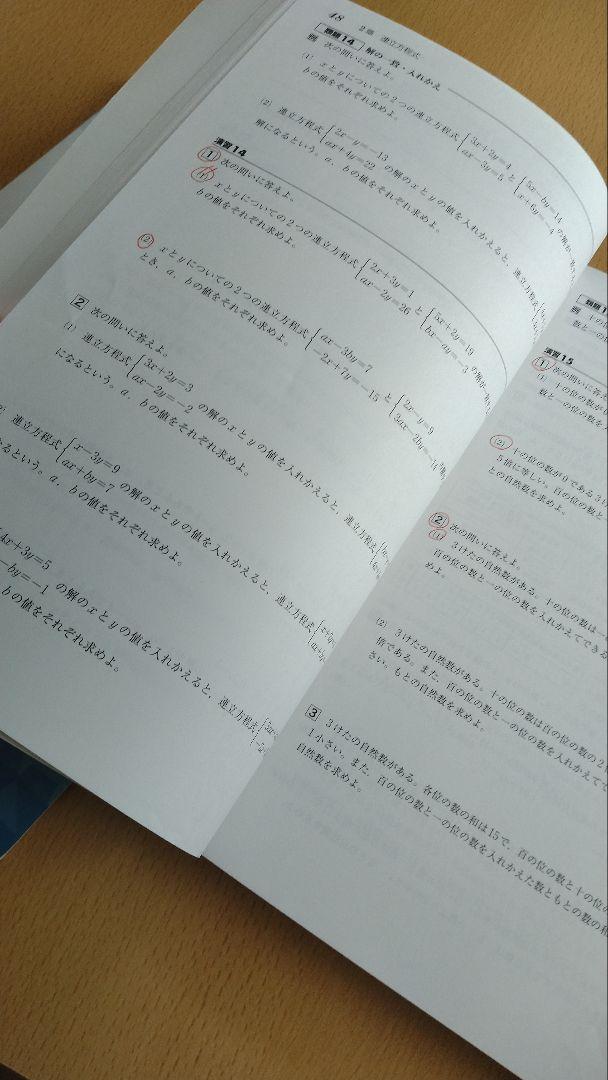 48 2章 連立方程式
類題14 解の一致・入れかえ
例 次の問いに答えよ。
(1) xとyについての2つの連立方程式{3x+2y=4 ax-3y=5 と{5x-by=14 x+6y=-4 の解が
bの値をそれぞれ求めよ。
(2) 連立方程式{2x-y=-13 ax+4y=22 の解のxとyの値を入れかえると、連立方程式
解になるという。a、bの値をそれぞれ求めよ。
演習14
1 次の問いに答えよ。
(1) xとyについての2つの連立方程式{2x+3y=1 ax-2y=26 と{5x+2y=19 bx-ay=-3 の解が
bの値をそれぞれ求めよ。
(2) xとyについての2つの連立方程式{ax-3by=7 -2x+7y=-15 と{2x-y=9 3ax-2by=
とき、a、bの値をそれぞれ求めよ。
2 次の問いに答えよ。
(1) 連立方程式{3x+2y=3 ax-2y=-2 の解のxとyの値を入れかえると、連立方程式
になるという。a、bの値をそれぞれ求めよ。
連立方程式{x-3y=9 ax+by=7 の解のxとyの値を入れかえると、連立方程式
るという。a、bの値をそれぞれ求めよ。
4x+3y=5 -by=-1 の解のxとyの値を入れかえると、連立方程式
bの値をそれぞれ求めよ。
類題1
例 十の
数と一の
演習15
1 次の問いに答え
(1) 十の位の数が
数と一の位の数を入
(2) 十の位の数が9である3け
5倍に等しい。百の位の数と
との自然数を求めよ。
2 次の問いに答えよ。
(1) 3けたの自然数がある。十の位の数は一
百の位の数と一の位の数を入れかえてできる
めよ。
(2) 3けたの自然数がある。十の位の数は百の位の数の2
倍である。また、百の位の数と一の位の数を入れかえて
さい。もとの自然数を求めよ。
3 3けたの自然数がある。各位の数の和は15で、百の位の数と十の位の
1小さい。また、百の位の数と一の位の数を入れかえた数ともとの数の和
自然数を求めよ。